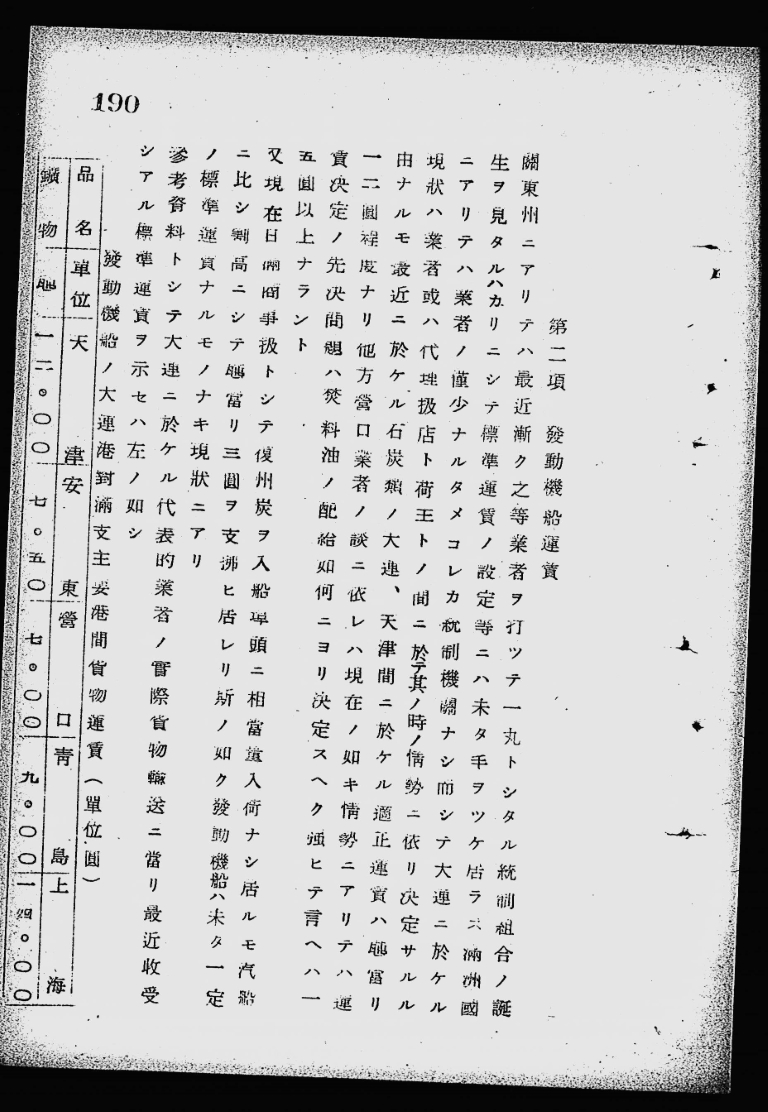 190
第二項　發動機船運賃
關東州ニアリテハ最近漸ク之等業者ヲ打ツテ一丸トシタル統制組合ノ誕
生ヲ見タルハカリニシテ標準運賃ノ設定等ニハ未タ手ヲツケ居ラス滿洲國
ニアリテハ業者ノ僅少ナルタメコレカ統制機關ナシ而シテ大連ニ於ケル
現狀ハ業者或ハ代理扱店ト荷主トノ間ニ於テ其ノ時ノ情勢ニ依リ決定サルル
由ナルモ最近ニ於ケル石炭類ノ大連、天津間ニ於ケル適正運賃ハ噸當リ
一二圓程度ナリ他方營口業者ノ談ニ依レハ現在ノ如キ情勢ニアリテハ運
賃決定ノ先決問題ハ焚料油ノ配給如何ニヨリ決定スヘク强ヒテ言ヘハ一
五圓以上ナラント
又現在日滿商事扱トシテ復州炭ヲ入船埠頭ニ相當量入荷ナシ居ルモ汽船
ニ比シ割高ニシテ噸當リ三圓ヲ支拂ヒ居レリ斯ノ如ク發動機船ハ未タ一定
ノ標準運賃ナルモノナキ現狀ニアリ
參考資料トシテ大連ニ於ケル代表的業者ノ實際貨物輸送ニ當リ最近收受
シアル標準運賃ヲ示セハ左ノ如シ
發動機船ノ大連港對滿支主要港間貨物運賃（單位圓）
品名　單位　天津　安東　營口　青島　上海
鑛物　噸　一二。〇〇　七。五〇　七。〇〇　九。〇〇　一四。〇〇